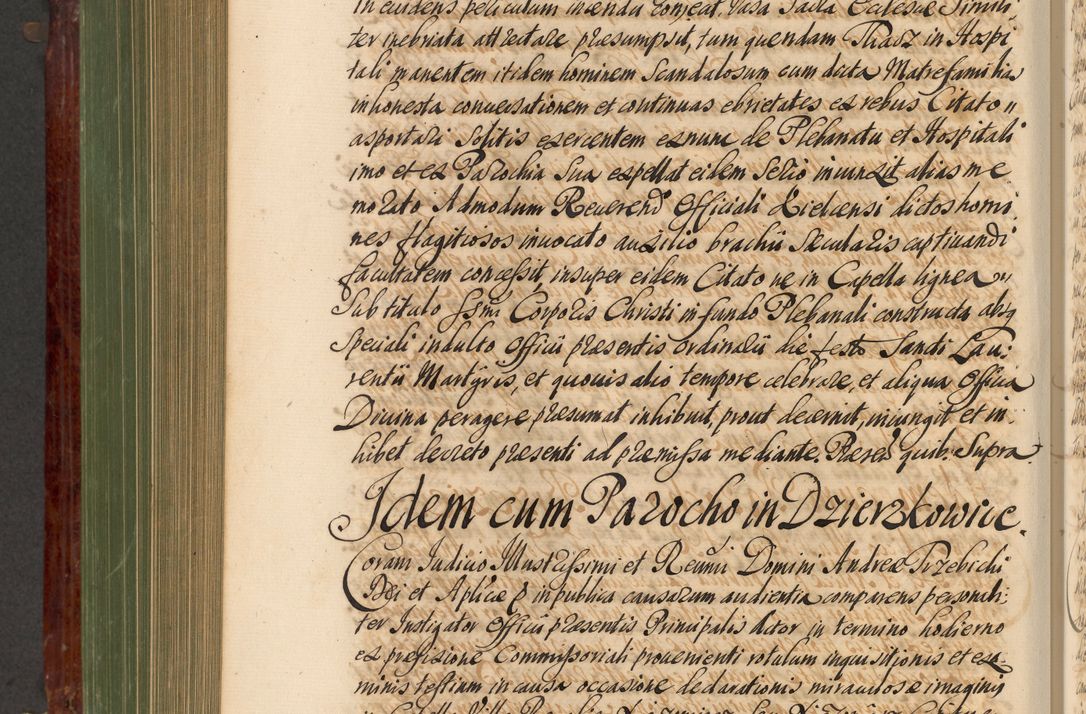 in euidens periculum incendii conijceat, Vasa Sacra Ecclesiæ Simili
ter inebriata attrectare præsumpsit, tum quendam Tkacz in Hospi
tali manentem itidem hominem Scandalosum cum dicta Matrefamilias
inhonesta conuersationem et continuas ebrietates ex rebus Citato
asportari Solitis exercentem exnunc de Plebanatu et Hospitali
imo et ex Parochia Sua expellat eidem Serio iniunxit alias me
morato Admodum Reuerend Officiali Kielcensi dictos homi
nes flagitiosos inuocato auxilio brachii Sæcularis captiuandi
facultatem concessit, insuper eidem Citato ne in Capella lignea
Sub titulo SSmi Corporis Christi in fundo Plebanali constructa absq
Speciali indulto Officii præsentis Ordinarii die festo Sancti Lau:
rentii Martÿris, et quouis alio tempore celebrare, et aliqua Officia
Diuina peragere præsumat inhibuit, prout decernit, iniungit et in
hibet decreto præsenti ad præmissa mediante. Præsen quib. Supra.
Idem cum Parocho in Dzierzkowice.
Coram Judicio Illustrissimi et Reumi Domini Andreæ Trzebicki
Dei et Aplicæ in publica causarum audientia comparens personali:
ter Instigator Officii præsentis Principalis Actor in termino hodierno
ex præfixione Commissoriali proueniente rotulum inquisitionis et exa
minis testium in causa occasione declarationis miraculosæ imaginis